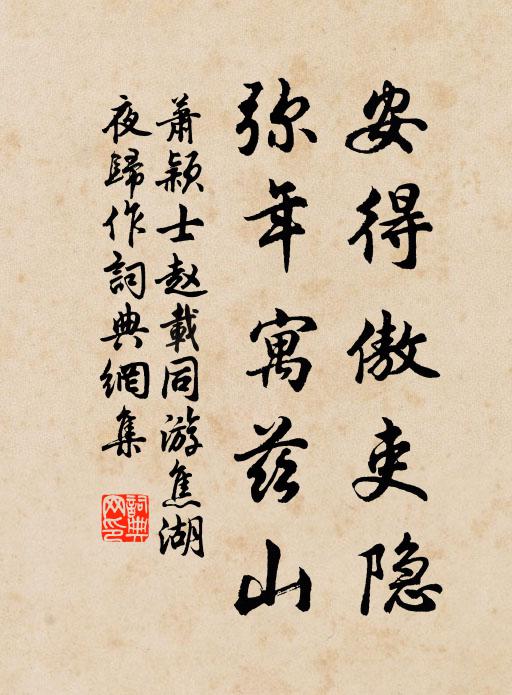 安得傲吏隐
弥年寓兹山
萧颖士赵载同游焦湖
夜歸作詞典網集
詞典网印